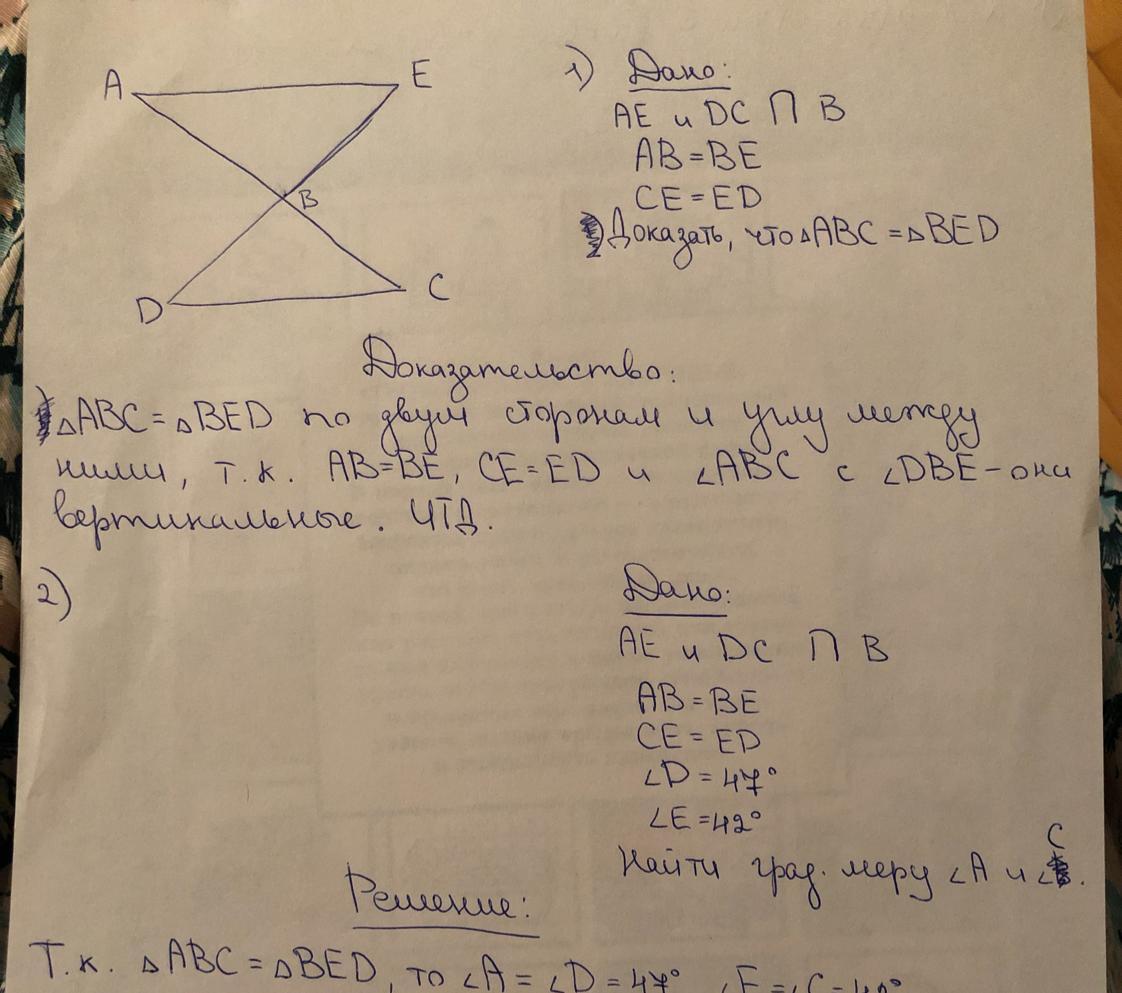 A
E
B
D
C
1) Дано:
AE и DC ∩ B
AB = BE
CE = ED
Доказать, что △ABC = △BED
Доказательство:
△ABC = △BED по двум сторонам и углу между
ними, т.к. AB=BE, CE=ED и ∠ABC с ∠DBE – они
вертикальные. ЧТД.
2)
Дано:
AE и DC ∩ B
AB = BE
CE = ED
∠D = 47°
∠E = 42°
Найти град. меру ∠A и ∠C.
Решение:
Т.к. △ABC = △BED, то ∠A = ∠D = 47°